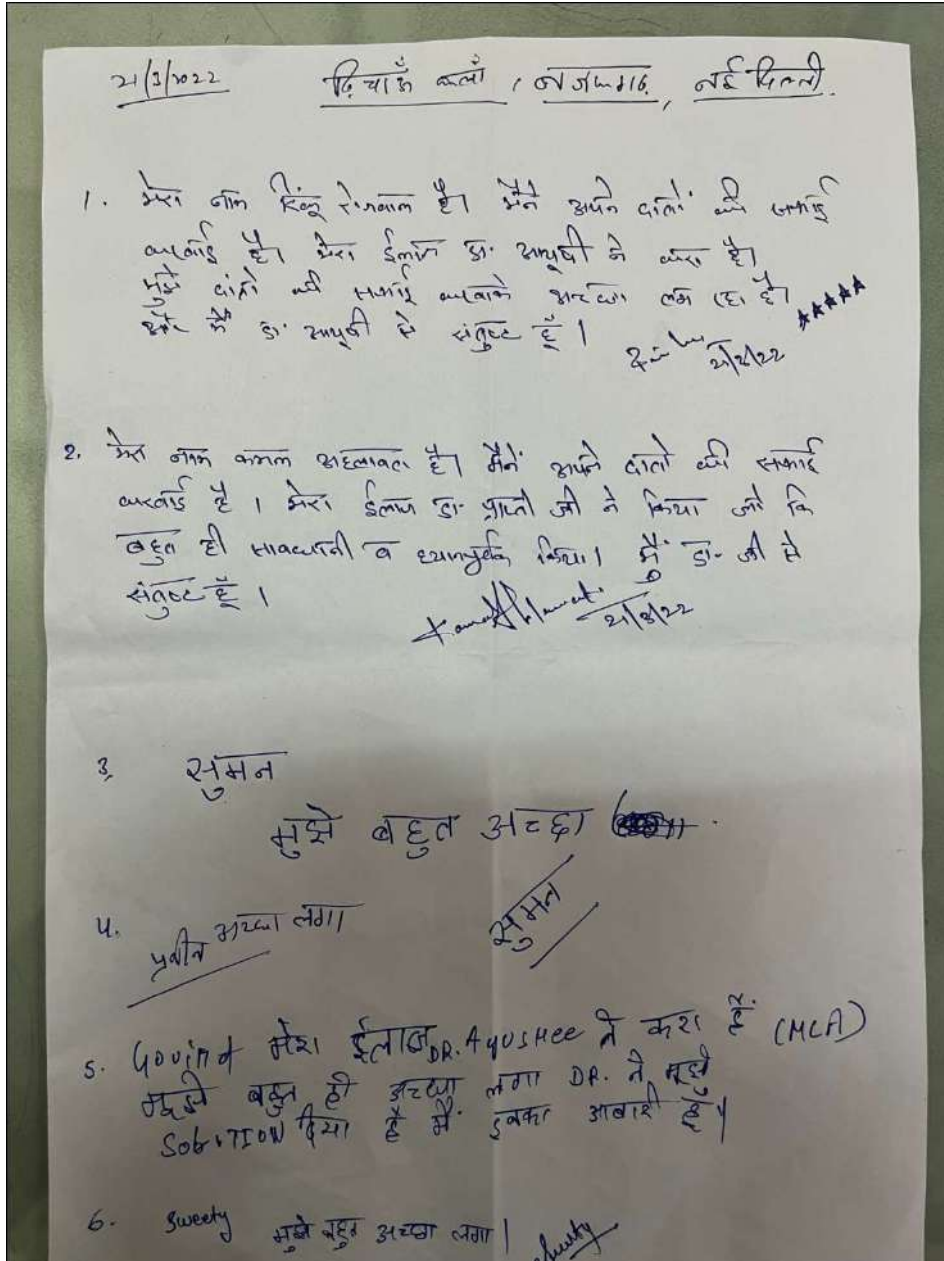 21/3/2022 दिचाऊँ कलाँ, नजफगढ़, नई दिल्ली.
1. मेरा नाम रिंकू रंगवाल है। मैंने अपने दातों की सफाई
करवाई है। मेरा ईलाज डा. आयूषी ने करा है।
मुझे दांतो की सफाई करवाके अच्छा लग रहा है।
और मैं डा. आयूषी से संतुष्ट हूँ।
21/3/22
2. मेरा नाम कमल अहलावत है। मैनें अपने दातो की सफाई
करवाई है। मेरा ईलाज डा. प्राप्ती जी ने किया जो कि
बहुत ही सावधानी व ध्यानपूर्वक किया। मैं डा. जी से
संतुष्ट हूँ।
21/3/22
3. सुमन
मुझे बहुत अच्छा
सुमन
4. प्रवीन अच्छा लगा
5. Govind मेरा ईलाज DR. AyusHee ने करा हैं (MCA)
मुझे बहुत ही अच्छा लगा DR. ने मुझे
दिया है मैं इनका आबारी हूँ
6. Sweety मुझे बहुत अच्छा लगा।